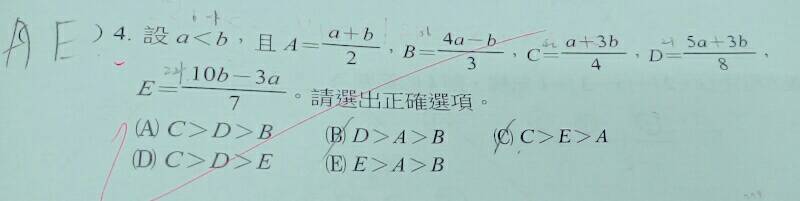 A E ) 4. 設 a<b，且 A=\frac{a+b}{2}，B=\frac{4a-b}{3}，C=\frac{a+3b}{4}，D=\frac{5a+3b}{8}，
E=\frac{10b-3a}{7}。請選出正確選項。
(A) C>D>B (B) D>A>B (C) C>E>A
(D) C>D>E (E) E>A>B